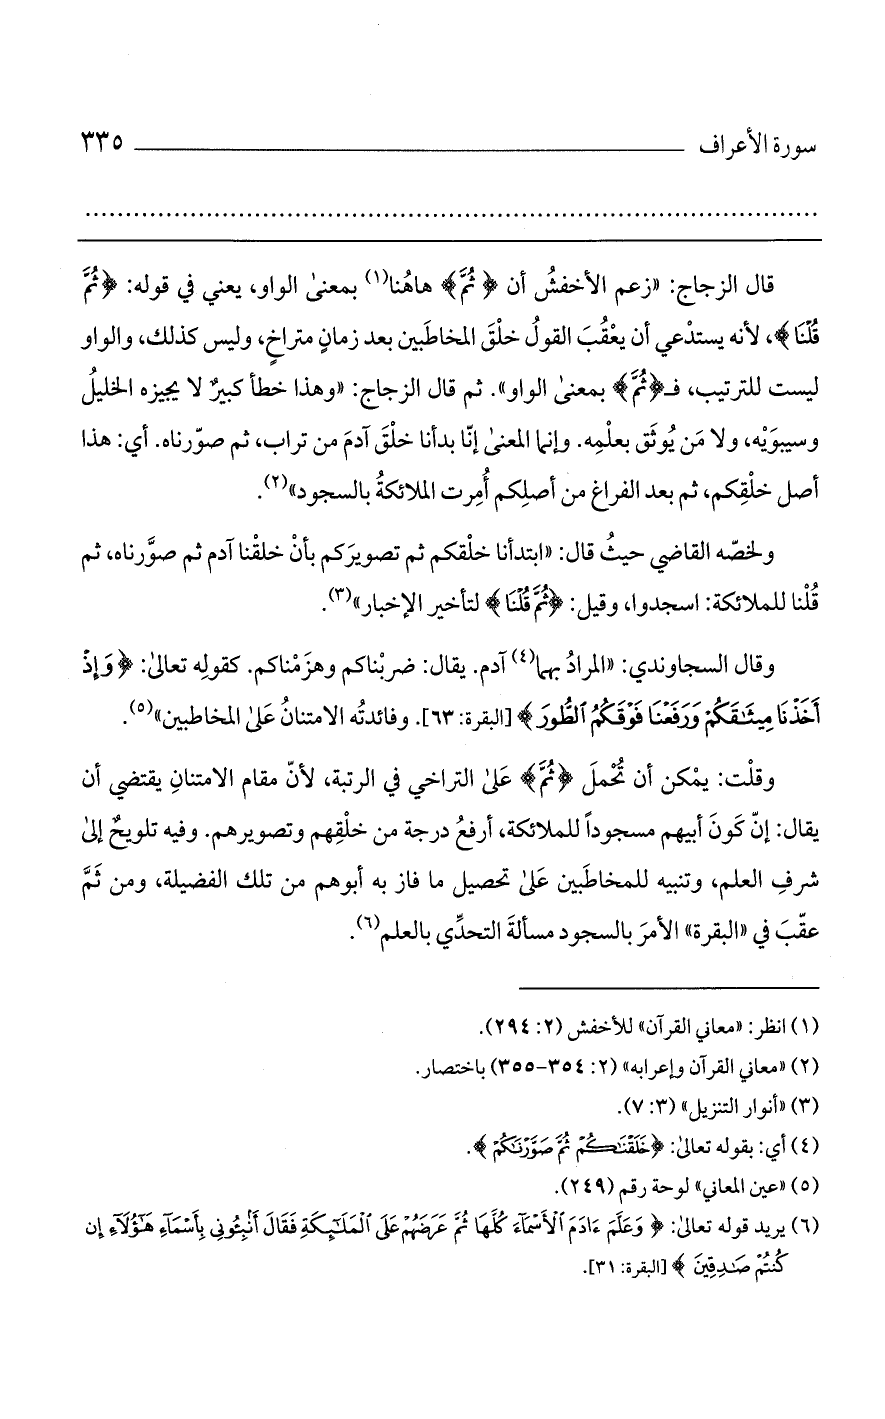 سورة الأعراف ـــــــــــــــــــــ ٣٣٥
قال الزجاج: «زعم الأخفشُ أن ﴿ثُمَّ﴾ هاهُنا(١) بمعنىٰ الواو، يعني في قوله: ﴿ثُمَّ
قُلْنَا﴾، لأنه يستدْعي أن يعْقُبَ القولُ خلْقَ المخاطَبين بعد زمانٍ متراخٍ، وليس كذلك، والواو
ليست للترتيب، فـ﴿ثُمَّ﴾ بمعنىٰ الواو». ثم قال الزجاج: «وهذا خطأ كبيرٌ لا يجيزه الخليلُ
وسيبوَيْه، ولا مَن يُوثَق بعلْمِه. وإنما المعنىٰ إنّا بدأنا خلْقَ آدمَ من تراب، ثم صوّرناه. أي: هذا
أصل خلْقِكم، ثم بعد الفراغ من أصلِكم أُمِرت الملائكةُ بالسجود»(٢).
ولخصّه القاضي حيثُ قال: «ابتدأنا خلْقكم ثم تصويرَكم بأنْ خلقْنا آدم ثم صوَّرناه، ثم
قُلْنا للملائكة: اسجدوا، وقيل: ﴿ثُمَّ قُلْنَا﴾ لتأخير الإخبار»(٣).
وقال السجاوندي: «المرادُ بهما(٤) آدم. يقال: ضربْناكم وهزَمْناكم. كقولِه تعالىٰ: ﴿وَإِذْ
أَخَذْنَا مِيثَٰقَكُمْ وَرَفَعْنَا فَوْقَكُمُ ٱلطُّورَ﴾ [البقرة: ٦٣]. وفائدتُه الامتنانُ عَلىٰ المخاطبين»(٥).
وقلْت: يمْكن أن تُحْملَ ﴿ثُمَّ﴾ عَلىٰ التراخي في الرتبة، لأنّ مقام الامتنانِ يقتضي أن
يقال: إنّ كَونَ أبيهم مسجوداً للملائكة، أرفعُ درجة من خلْقِهم وتصويرهم. وفيه تلويحٌ إلىٰ
شرفِ العلم، وتنبيه للمخاطَبين عَلىٰ تحصيل ما فاز به أبوهم من تلك الفضيلة، ومن ثَمَّ
عقّبَ في «البقرة» الأمرَ بالسجود مسألةَ التحدِّي بالعلم(٦).
(١) انظر: «معاني القرآن» للأخفش (٢: ٢٩٤).
(٢) «معاني القرآن وإعرابه» (٢: ٣٥٤-٣٥٥) باختصار.
(٣) «أنوار التنزيل» (٣: ٧).
(٤) أي: بقوله تعالىٰ: ﴿خَلَقْنَٰكُمْ ثُمَّ صَوَّرْنَٰكُمْ﴾.
(٥) «عين المعاني» لوحة رقم (٢٤٩).
(٦) يريد قوله تعالىٰ: ﴿وَعَلَّمَ ءَادَمَ ٱلْأَسْمَآءَ كُلَّهَا ثُمَّ عَرَضَهُمْ عَلَى ٱلْمَلَٰٓئِكَةِ فَقَالَ أَنۢبِـُٔونِى بِأَسْمَآءِ هَٰٓؤُلَآءِ إِن
كُنتُمْ صَٰدِقِينَ﴾ [البقرة: ٣١].